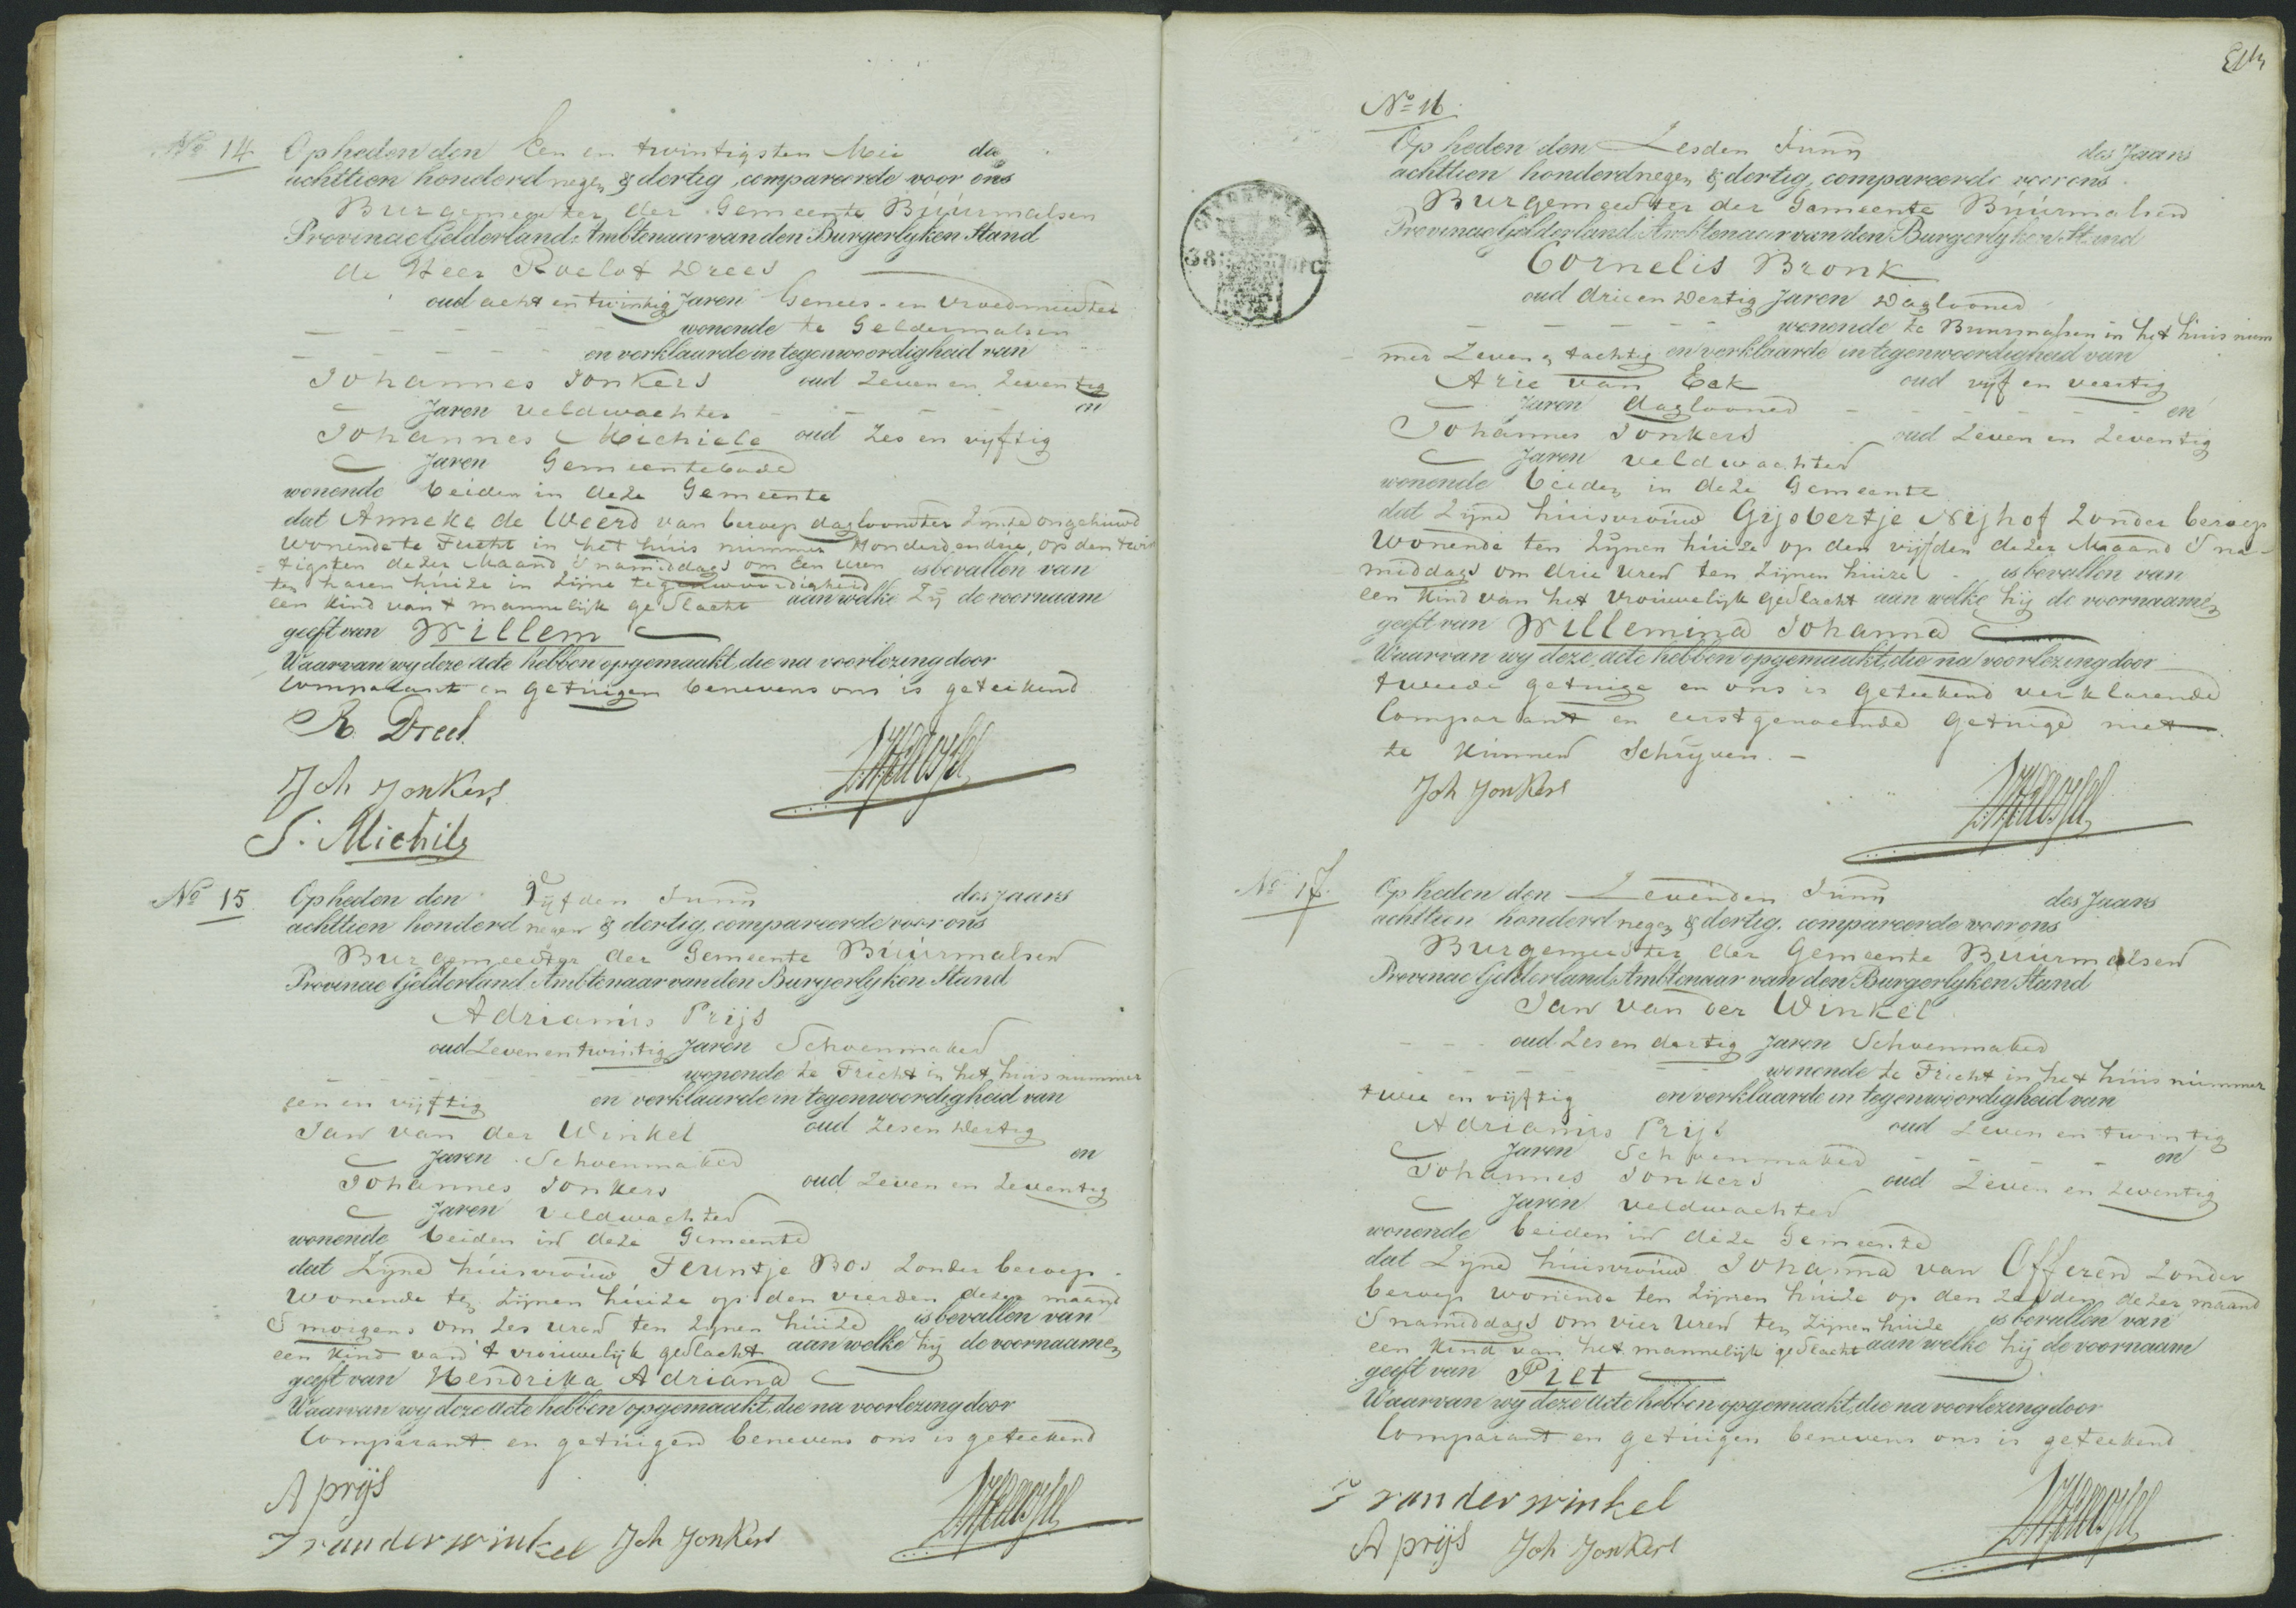 No 14 Op heden den Een en twintigsten Mei de
achttien honderd negen & dertig, compareerde voor ons
Burgemeester der Gemeente Buurmalsen
Provincie Gelderland Ambtenaar van den Burgerlyken Stand
de Heer Roelof Drees
oud acht en twintig Jaren Genees- en Vroedmeester
wonende te Geldermalsen
en verklaarde in tegenwoordigheid van
Johannes Jonkers oud zeven en zeventig
Jaren veldwachter en
Johannes Michiels oud zes en vyftig
Jaren Gemeentebode
wonende beiden in deze Gemeente
dat Anneke de Weerd van beroep dagloonster zynde ongehuwd
wonende te Tricht in het huis nummer Honderd en drie, op den twin
tigsten dezer Maand s namiddags om Een uren is bevallen van
ten haren huize in zijne tegenwoordigheid
een kind van t mannelijk geslacht aan welke zy de voornaam
geeft van Willem
Waarvan wy deze acte hebben opgemaakt, die na voorlezing door
Comparant en getuigen benevens ons is geteekend
R. Drees
Joh Jonkers
J. Michils
No 15 Op heden den Vijfden Junij des jaars
achttien honderd negen & dertig, compareerde voor ons
Burgemeester der Gemeente Buurmalsen
Provincie Gelderland Ambtenaar van den Burgerlyken Stand
Adrianus Prijs
oud zeven en twintig Jaren Schoenmaker
wonende te Tricht in het huis nummer
een en vijftig en verklaarde in tegenwoordigheid van
Jan van der Winkel oud zes en dertig
Jaren Schoenmaker en
Johannes Jonkers oud zeven en zeventig
Jaren veldwachter
wonende beiden in deze Gemeente
dat zijne huisvrouw Teuntje Bos zonder beroep
wonende ten zijnen huize op den vierden dezer maand
s morgens om zes uren ten zijnen huize is bevallen van
een kind van 't vrouwelijk geslacht aan welke hij de voornaamen
geeft van Hendrika Adriana
Waarvan wy deze acte hebben opgemaakt, die na voorlezing door
Comparant en getuigen benevens ons is geteekend
A prijs
J van der winkel Joh Jonkers
No 16
Op heden den Zesden Junij des Jaars
achttien honderd negen & dertig, compareerde voor ons
Burgemeester der Gemeente Buurmalsen
Provincie Gelderland Ambtenaar van den Burgerlyken Stand
Cornelis Bronk
oud drie en dertig Jaren Daglooner
wonende te Buurmalsen in het huis num
mer zeven en tachtig en verklaarde in tegenwoordigheid van
Arie van Eck oud vijf en veertig
Jaren daglooner en
Johannes Jonkers oud zeven en zeventig
Jaren veldwachter
wonende beiden in deze Gemeente
dat zijne huisvrouw Gijsbertje Nijhof zonder beroep
wonende ten zijnen huize op den vijfden dezer Maand s na-
middags om drie uren ten zijnen huize is bevallen van
een kind van het vrouwelijk geslacht aan welke hij de voornaamen
geeft van Willemina Johanna
Waarvan wy deze acte hebben opgemaakt, die na voorlezing door
tweede getuige en ons is geteekend verklarende
Comparant en eerstgenoemde getuige niet
te kunnen Schrijven.
Joh Jonkers
No 17. Op heden den Zevenden Junij des Jaars
achttien honderd negen & dertig, compareerde voor ons
Burgemeester der Gemeente Buurmalsen
Provincie Gelderland Ambtenaar van den Burgerlyken Stand
Jan van der Winkel
oud zes en dertig Jaren Schoenmaker
wonende te Tricht in het huis nummer
twee en vijftig en verklaarde in tegenwoordigheid van
Adrianus Prijs oud zeven en twintig
Jaren Schoenmaker en
Johannes Jonkers oud zeven en zeventig
Jaren veldwachter
wonende beiden in deze Gemeente
dat zijne huisvrouw Johanna van Offeren zonder
beroep wonende ten zijnen huize op den zesden dezer maand
s namiddags om vier uren ten zijnen huize is bevallen van
een kind van het mannelijk geslacht aan welke hij de voornaam
geeft van Piet
Waarvan wy deze acte hebben opgemaakt, die na voorlezing door
Comparant en getuigen benevens ons is geteekend
J van der winkel
A prijs Joh Jonkers